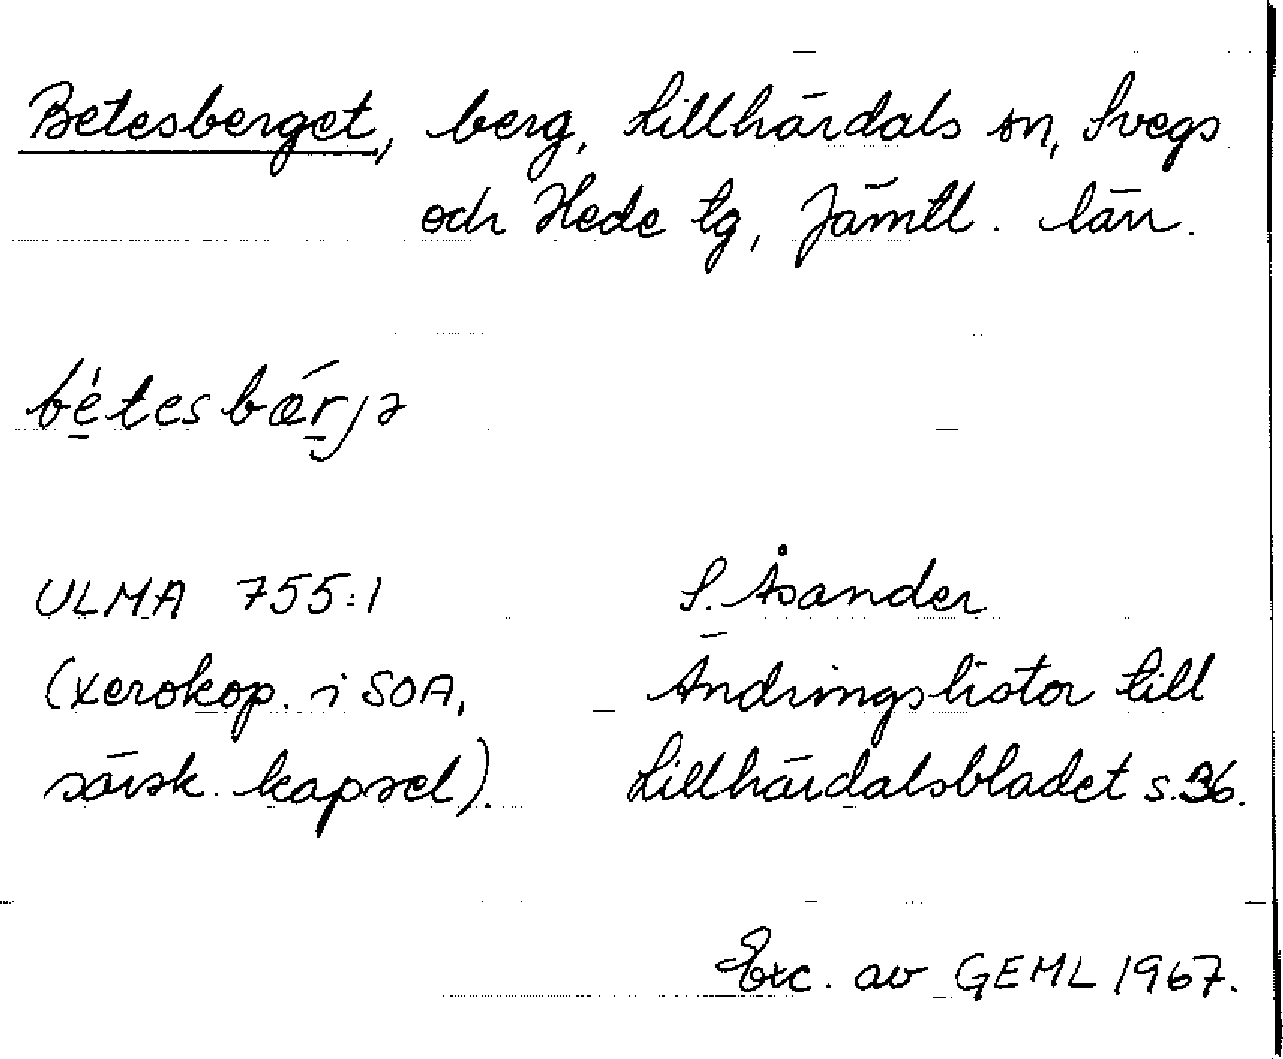 Betesberget, berg, Lillhärdals sn, Svegs
och Hede tg, Jämtl. län.
bétesbærjə
ULMA 755:1
S. Åsander
(xerokop. i SOA,
Ändringslistor till
särsk. kapsel).
Lillhärdalsbladet s. 36.
Exc. av GEML 1967.